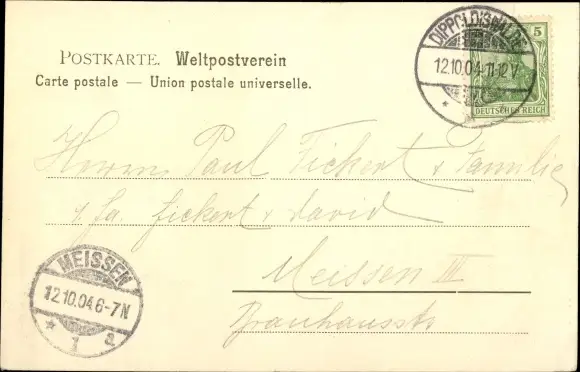 POSTKARTE. Weltpostverein
Carte postale — Union postale universelle.
DIPPOLDISWALDE
12.10.04.11-12V
5
DEUTSCHES REICH
Herrn Paul Fickert & Familie
fa. fickert & david
Meissen III
Brauhausstr
MEISSEN
12.10.04.6-7N
* 1 a